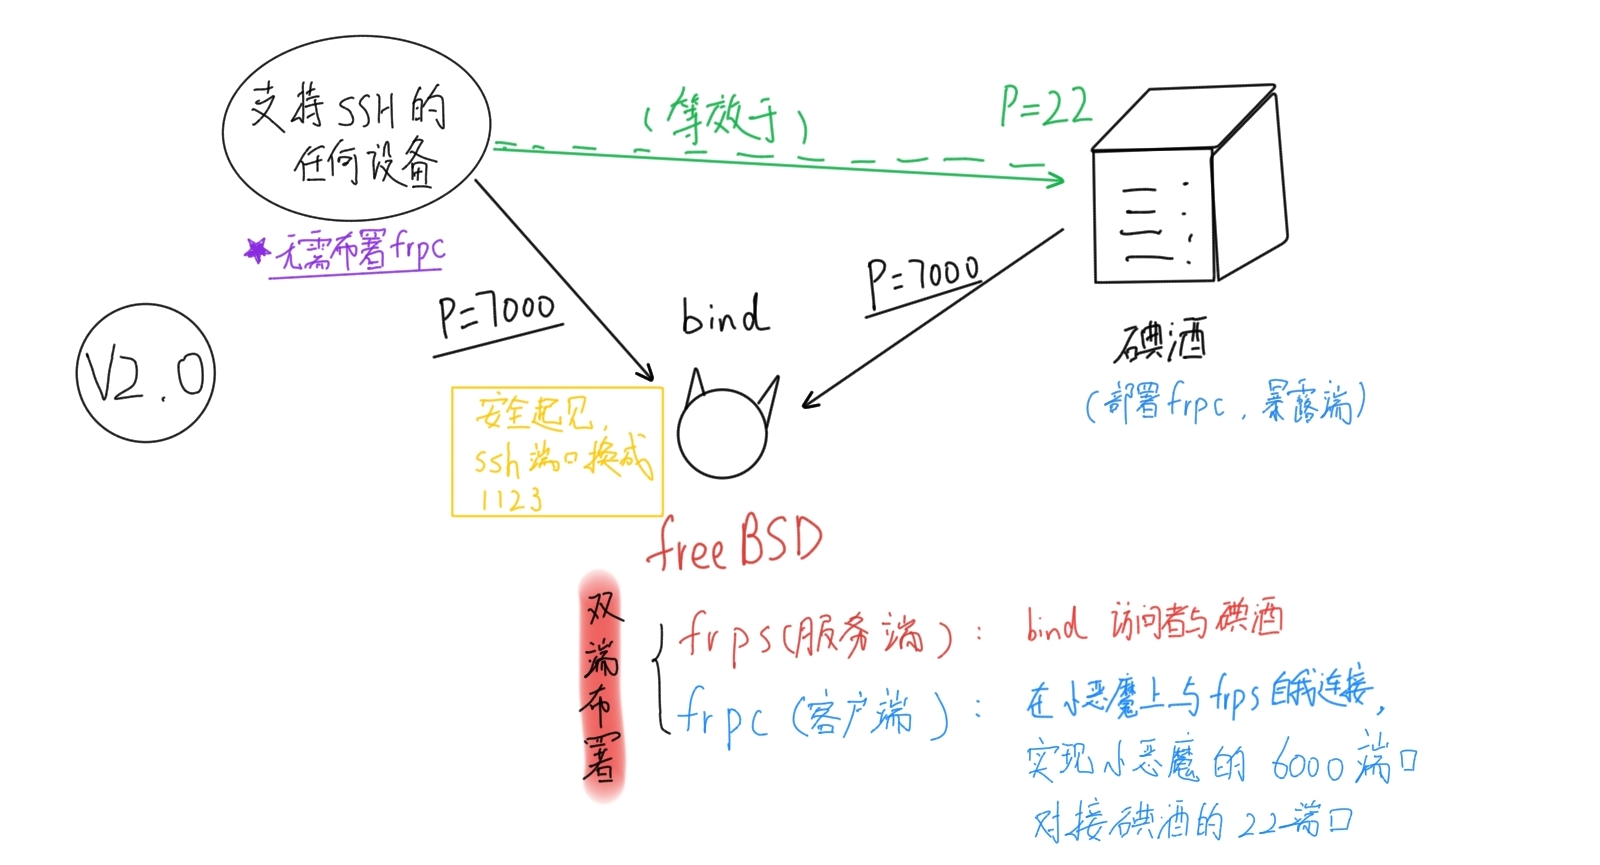 支持SSH的
任何设备
(等效于)
P=22
★无需布署frpc
P=7000
bind
P=7000
V2.0
碘酒
(部署frpc，暴露端)
安全起见，
ssh端口换成
1123
freeBSD
双端布署
frps(服务端)： bind 访问者与碘酒
frpc(客户端)： 在小恶魔上与frps自我连接，
实现小恶魔的6000端口
对接碘酒的22端口